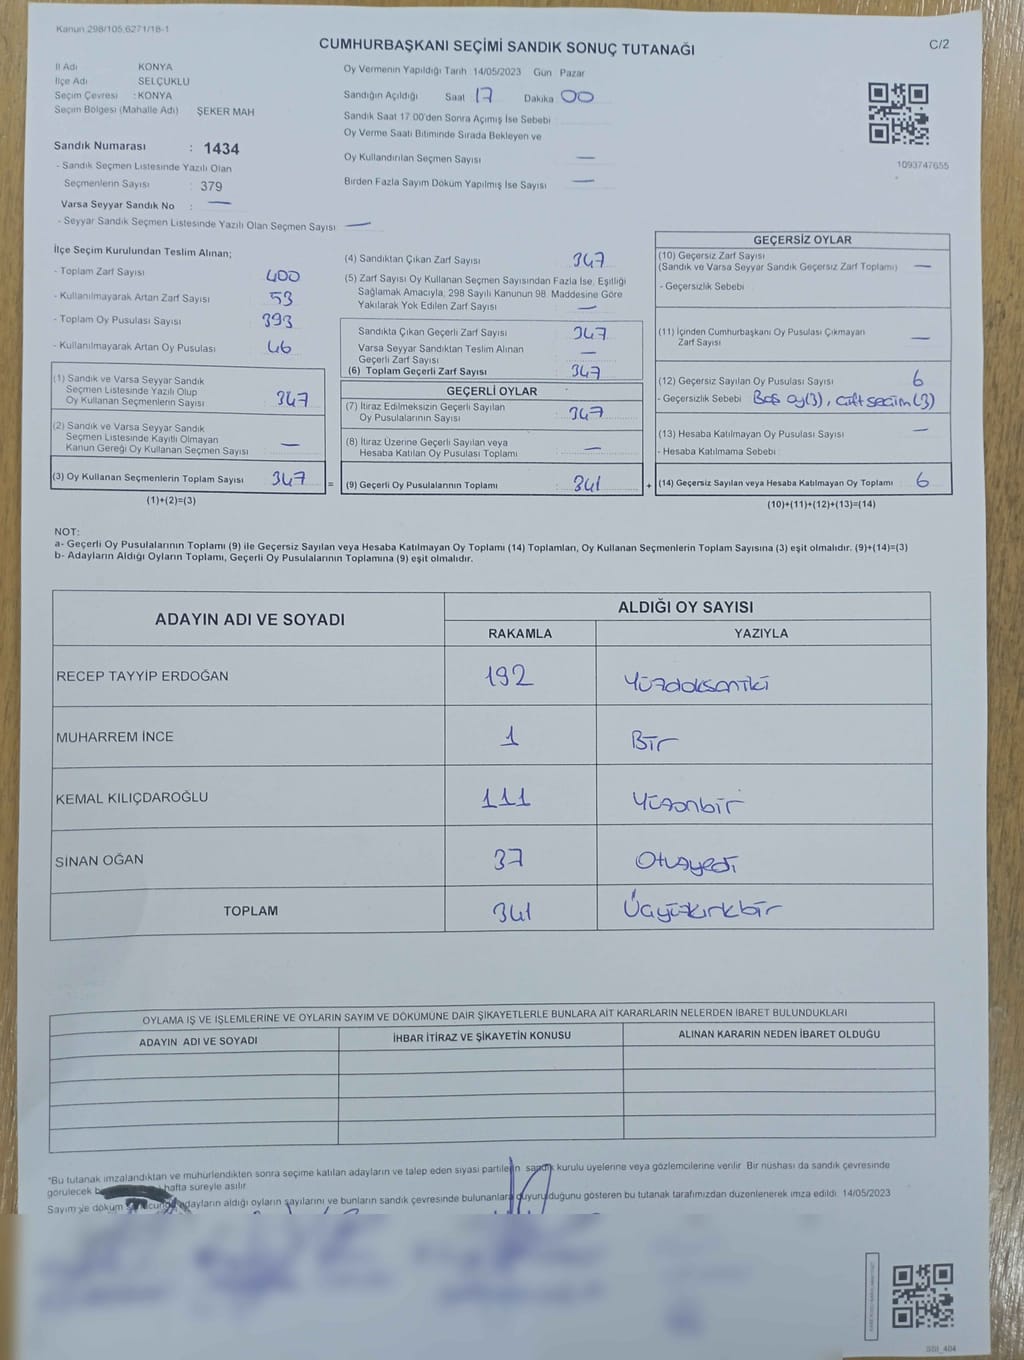 Kanun 298/105,6271/18-1
C/2
CUMHURBAŞKANI SEÇİMİ SANDIK SONUÇ TUTANAĞI
İl Adı KONYA
İlçe Adı SELÇUKLU
Seçim Çevresi : KONYA
Seçim Bölgesi (Mahalle Adı) ŞEKER MAH
Sandık Numarası : 1434
- Sandık Seçmen Listesinde Yazılı Olan
Seçmenlerin Sayısı : 379
Varsa Seyyar Sandık No : —
- Seyyar Sandık Seçmen Listesinde Yazılı Olan Seçmen Sayısı —
Oy Vermenin Yapıldığı Tarih 14/05/2023 Gün Pazar
Sandığın Açıldığı Saat 17 Dakika 00
Sandık Saat 17 00'den Sonra Açımış İse Sebebi
Oy Verme Saati Bitiminde Sırada Bekleyen ve
Oy Kullandırılan Seçmen Sayısı —
Birden Fazla Sayım Döküm Yapılmış İse Sayısı —
1093747655
İlçe Seçim Kurulundan Teslim Alınan;
- Toplam Zarf Sayısı 400
- Kullanılmayarak Artan Zarf Sayısı 53
- Toplam Oy Pusulası Sayısı 393
- Kullanılmayarak Artan Oy Pusulası 46
(1) Sandık ve Varsa Seyyar Sandık
Seçmen Listesinde Yazılı Olup
Oy Kullanan Seçmenlerin Sayısı 347
(2) Sandık ve Varsa Seyyar Sandık
Seçmen Listesinde Kayıtlı Olmayan
Kanun Gereği Oy Kullanan Seçmen Sayısı —
(3) Oy Kullanan Seçmenlerin Toplam Sayısı 347
(1)+(2)=(3)
=
(4) Sandıktan Çıkan Zarf Sayısı 347
(5) Zarf Sayısı Oy Kullanan Seçmen Sayısından Fazla İse, Eşitliği
Sağlamak Amacıyla; 298 Sayılı Kanunun 98. Maddesine Göre
Yakılarak Yok Edilen Zarf Sayısı —
Sandıkta Çıkan Geçerli Zarf Sayısı 347
Varsa Seyyar Sandıktan Teslim Alınan
Geçerli Zarf Sayısı —
(6) Toplam Geçerli Zarf Sayısı 347
GEÇERLİ OYLAR
(7) İtiraz Edilmeksizin Geçerli Sayılan
Oy Pusulalarının Sayısı 347
(8) İtiraz Üzerine Geçerli Sayılan veya
Hesaba Katılan Oy Pusulası Toplamı —
(9) Geçerli Oy Pusulalarının Toplamı 341
+
GEÇERSİZ OYLAR
(10) Geçersiz Zarf Sayısı
(Sandık ve Varsa Seyyar Sandık Geçersiz Zarf Toplamı) —
- Geçersizlik Sebebi
(11) İçinden Cumhurbaşkanı Oy Pusulası Çıkmayan
Zarf Sayısı —
(12) Geçersiz Sayılan Oy Pusulası Sayısı 6
- Geçersizlik Sebebi Boş oy(3), Çift seçim(3)
(13) Hesaba Katılmayan Oy Pusulası Sayısı —
- Hesaba Katılmama Sebebi
(14) Geçersiz Sayılan veya Hesaba Katılmayan Oy Toplamı 6
(10)+(11)+(12)+(13)=(14)
NOT:
a- Geçerli Oy Pusulalarının Toplamı (9) ile Geçersiz Sayılan veya Hesaba Katılmayan Oy Toplamı (14) Toplamları, Oy Kullanan Seçmenlerin Toplam Sayısına (3) eşit olmalıdır. (9)+(14)=(3)
b- Adayların Aldığı Oyların Toplamı, Geçerli Oy Pusulalarının Toplamına (9) eşit olmalıdır.
ADAYIN ADI VE SOYADI
ALDIĞI OY SAYISI
RAKAMLA YAZIYLA
RECEP TAYYİP ERDOĞAN 192 Yüzdoksaniki
MUHARREM İNCE 1 Bir
KEMAL KILIÇDAROĞLU 111 Yüzonbir
SİNAN OĞAN 37 Otuzyedi
TOPLAM 341 Üçyüzkırkbir
OYLAMA İŞ VE İŞLEMLERİNE VE OYLARIN SAYIM VE DÖKÜMÜNE DAİR ŞİKAYETLERLE BUNLARA AİT KARARLARIN NELERDEN İBARET BULUNDUKLARI
ADAYIN ADI VE SOYADI İHBAR İTİRAZ VE ŞİKAYETİN KONUSU ALINAN KARARIN NEDEN İBARET OLDUĞU
*Bu tutanak imzalandıktan ve mühürlendikten sonra seçime katılan adayların ve talep eden siyasi partilerin sandık kurulu üyelerine veya gözlemcilerine verilir. Bir nüshası da sandık çevresinde
görülecek hafta süreyle asılır.
Sayım ve döküm adayların aldığı oyların sayılarını ve bunların sandık çevresinde bulunanlara duyurulduğunu gösteren bu tutanak tarafımızdan düzenlenerek imza edildi. 14/05/2023